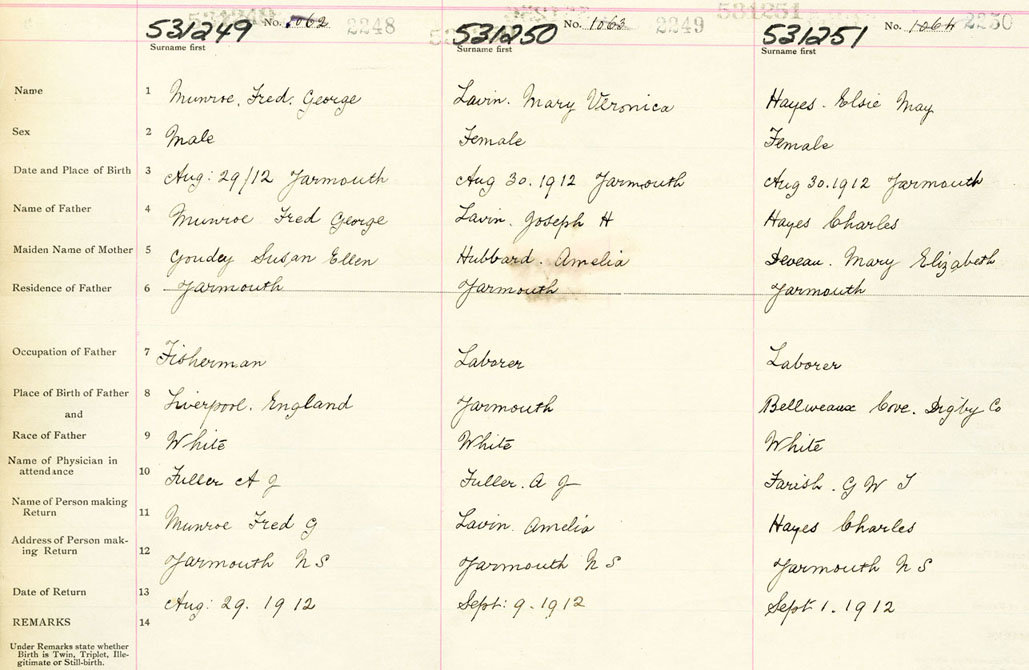 531249 No. 1062 2248 531250 No. 1063 2249 531251 531251 No. 1064 2250
Surname first Surname first Surname first
Name 1 Munroe, Fred. George Lavin. Mary Veronica Hayes. Elsie May
Sex 2 Male Female Female
Date and Place of Birth 3 Aug: 29/12 Yarmouth Aug 30. 1912 Yarmouth Aug 30. 1912 Yarmouth
Name of Father 4 Munroe Fred George Lavin. Joseph H Hayes Charles
Maiden Name of Mother 5 Goudey Susan Ellen Hubbard. Amelia Deveau. Mary Elizabeth
Residence of Father 6 Yarmouth Yarmouth Yarmouth
Occupation of Father 7 Fisherman Laborer Laborer
Place of Birth of Father 8 Liverpool. England Yarmouth Bellweaux Cove. Digby Co
and
Race of Father 9 White White White
Name of Physician in
attendance 10 Fuller A J Fuller. A J Farish. G W T
Name of Person making
Return 11 Munroe Fred G Lavin Amelia Hayes Charles
Address of Person mak-
ing Return 12 Yarmouth N S Yarmouth N S Yarmouth N S
Date of Return 13 Aug: 29. 1912 Sept: 9. 1912 Sept 1. 1912
REMARKS 14
Under Remarks state whether
Birth is Twin, Triplet, Ille-
gitimate or Still-birth.